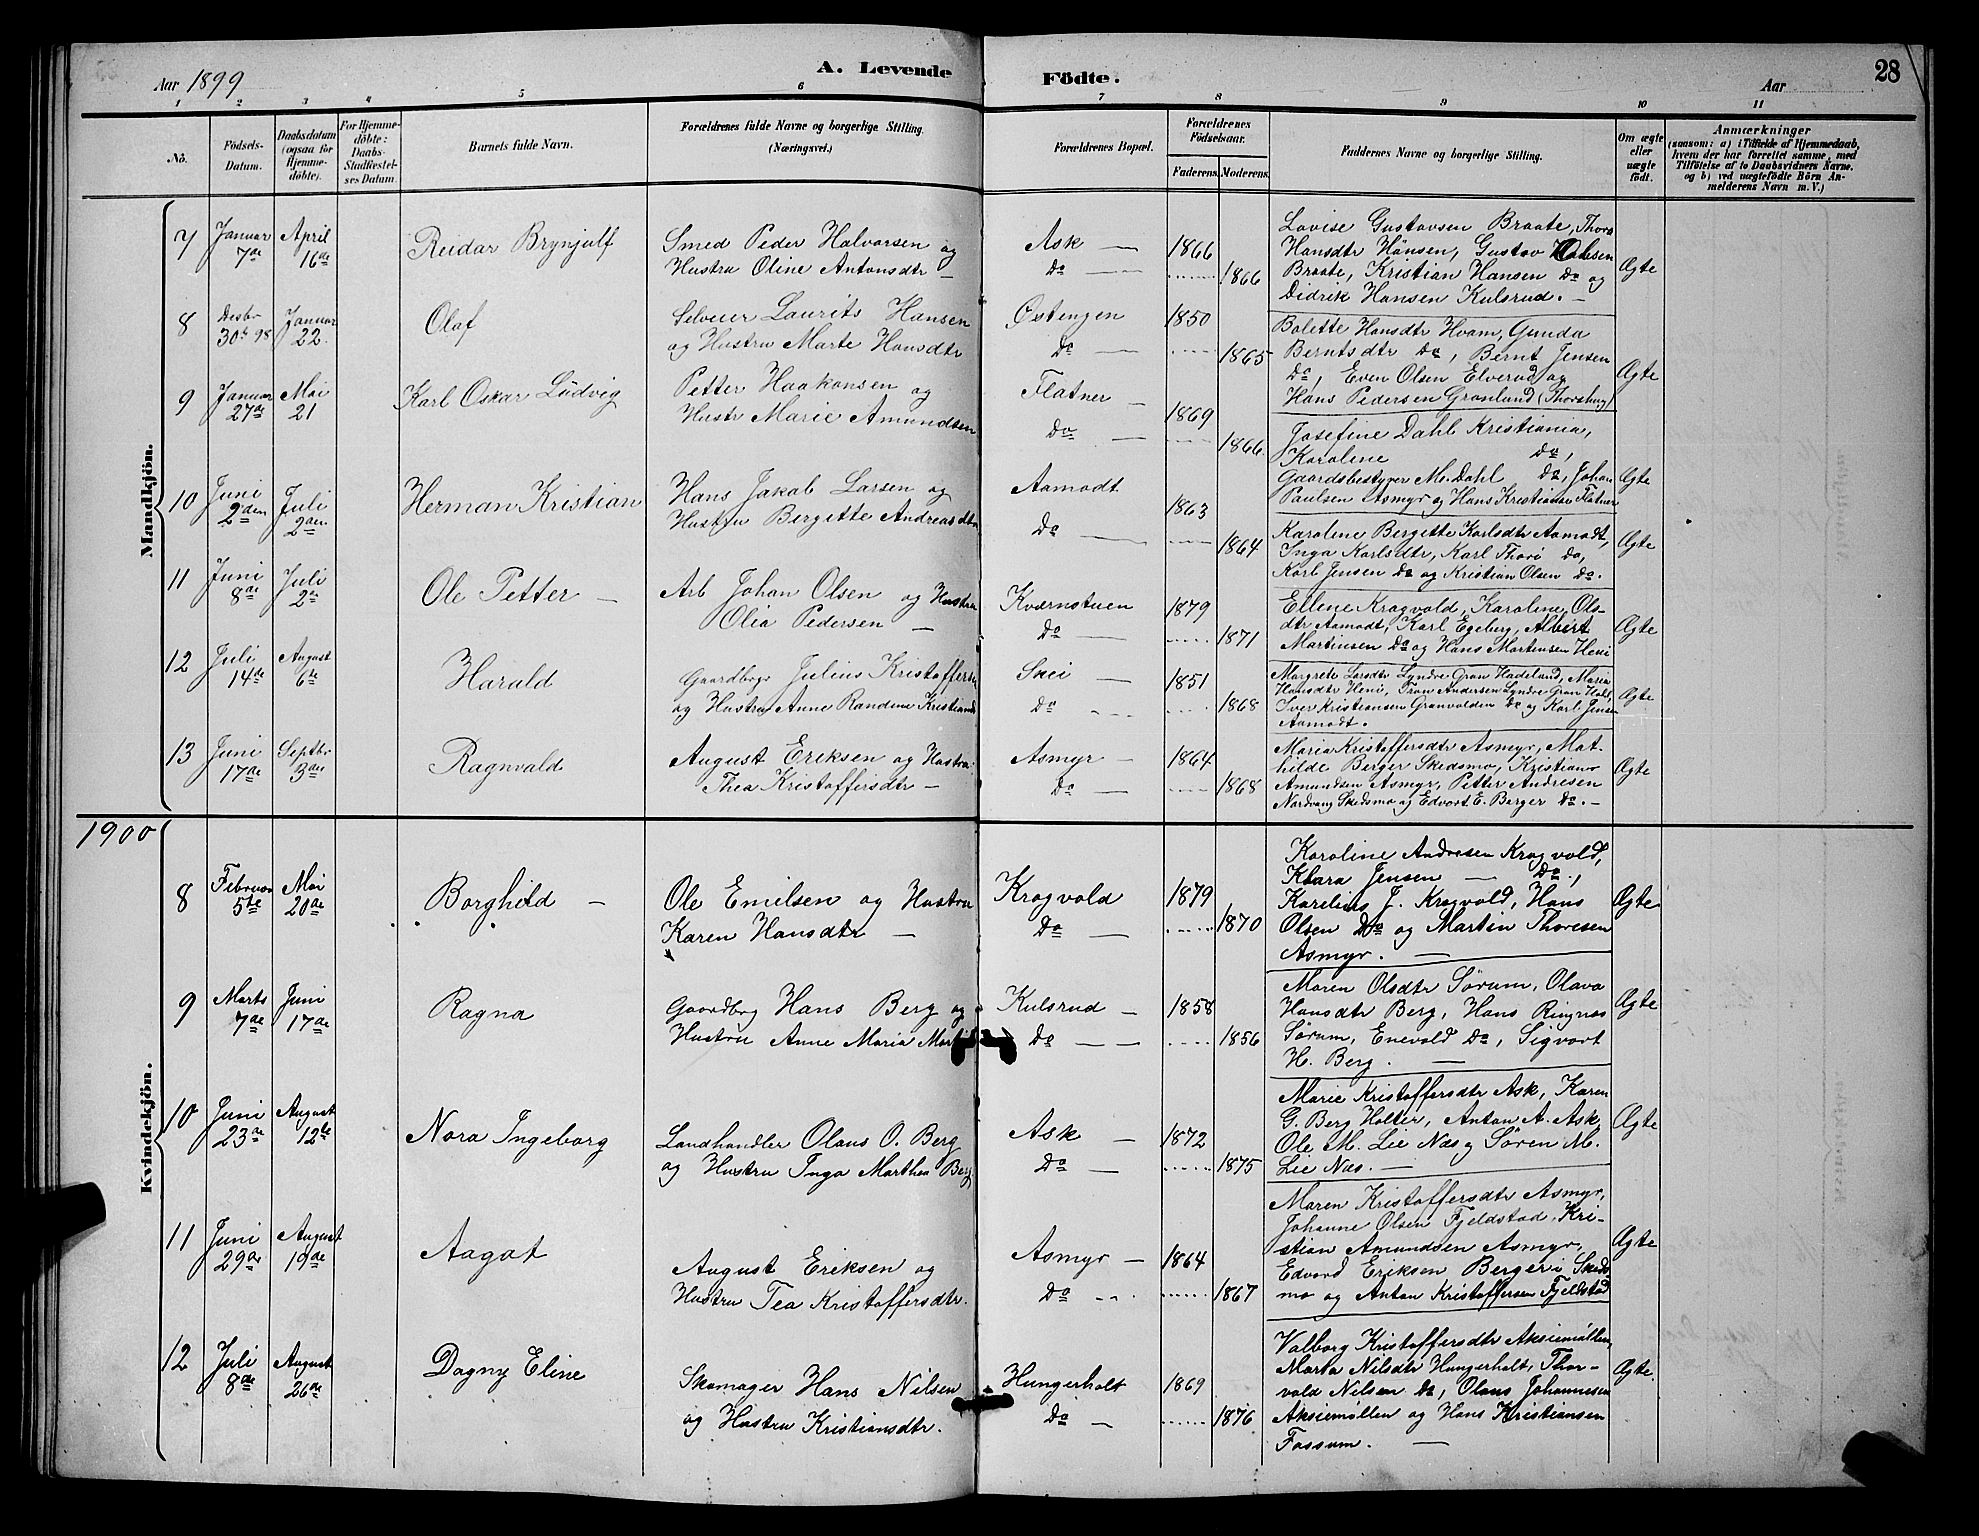 Aar 1899
A. Levende Födte.
Aar
28
1 2 3 4 5 6 7 8 9 10 11
No.
Födsels-Datum.
Daabsdatum (ogsaa for Hjemme-döbte).
For Hjemme-döbte: Daabs-Stadfæstel-ses Datum.
Barnets fulde Navn.
Forældrenes fulde Navne og borgerlige Stilling. (Næringsvei.)
Forældrenes Bopæl.
Forældrenes Födselsaar.
Faderens. Moderens.
Faddernes Navne og borgerlige Stilling.
Om ægte eller uægte födt.
Anmærkninger
(saasom: a) i Tilfælde af Hjemmedaab, hvem der har forrettet samme, med Tilföielse af to Daabsvidners Navne, og b) ved uægtefödte Börn An-melderens Navn m. V.)
Mandkjön.
7 Januar 7de April 16de Reidar Brynjulf
Smed Peder Halvorsen og
Hustru Oline Antonsdtr —
Ask — 1866
Do — 1866
Lovise Gustavsen Braate, Thora
Hansdtr Hansen, Gustav
Braate, Kristian Hansen Do og
Didrik Hansen Kulsrud. —
Ægte
8 Desbr 30te 98 Januar 22. Olaf
Selveier Laurits Hansen
og Hustru Marte Hansdtr
Østengen 1850
Do — 1865
Bolette Hansdtr Hvam, Gunda
Berntsdtr Do, Bernt Jensen
Do, Even Olsen Elverud og
Hans Pedersen Grønlund (Thorshug)
Ægte
9 Januar 27de Mai 21 Karl Oskar Ludvig
Petter Haakonsen og
Hustr Marie Amundsen
Flatner — 1869
Do — 1866
Josefine Dahl Kristiania,
Karolene Do,
Gaardsbestyrer M. Dahl Do, Johan
Paulsen Asmyr og Hans Kristiansen Flatner
Ægte
10 Juni 2den Juli 2den Herman Kristian
Hans Jakob Larsen og
Hustru Bergitte Andreasdtr
Aamodt 1863
Do — 1864
Karolene Bergitte Karlsdtr Aamodt,
Inga Karlsdtr, Karl Thori do,
Karl Jensen Do og Kristian Olsen Do.
Ægte
11 Juni 8de Juli 2de Ole Petter —
Arb Johan Olsen og Hustru
Olia Pedersen —
Kværnstuen 1879
Do — 1871
Ellene Kragvold, Karoline Ols-
dtr Aamodt, Karl Egeberg, Albert
Martinsen Do og Hans Mortensen Heni
Ægte
12 Juli 14de August 6te Harald
Gaardbrgr Julius Kristoffersen
og Hustru Anne Randine Kristians
Skei — 1851
Do 1868
Margrete Larsdtr Lyndre Gran Hadeland, Maria
Hansdtr Heni, Tron Andersen Lyndre Gran Hadel,
Iver Kristiansen Granvolden Do og Karl Jensen
Aamodt.
Ægte
13 Juni 17de Septbr 3die Ragnvald
August Eriksen og Hustru
Thea Kristoffersdtr —
Asmyr — 1864
Do — 1868
Maria Kristoffersdtr Asmyr, Mat-
hilde Berger Skedsmo, Kristian
Amundsen Asmyr, Petter Andresen
Nordvang Skedsmo og Edvort E. Berger Do. —
Ægte
1900
Kvindekjön.
8 Februar 5te Mai 20de Borghild —
Ole Emilsen og Hustru
Karen Hansdtr —
Kragvold 1879
Do — 1870
Karoline Andresen Kragvold,
Klara Jensen — Do,
Karelius J. Kragvold, Hans
Olsen Do og Martin Thoresen
Asmyr. —
Ægte
9 Marts 7de Juni 17de Ragna
Gaardbrg Hans Berg og
Hustru Anne Maria
Kulsrud — 1858
Do — 1856
Maren Olsdtr Sørum, Olava
Hansdtr Berg, Hans Ringnæs
Sørum, Enevold Do, Sigvort
H. Berg. —
Ægte
10 Juni 23de August 12te Nora Ingeborg
Landhandler Olaus O. Berg
og Hustru Inga Marthea Berg
Ask — 1872
Do — 1875
Marie Kristoffersdtr Ask, Karen
G. Berg Holter, Anton A. Ask,
Ole M. Lie Næs og Søren M.
Lie Næs. —
Ægte
11 Juni 29de August 19de Aagot
August Eriksen og
Hustru Tea Kristoffersdtr.
Asmyr — 1864
Do 1867
Maren Kristoffersdtr Asmyr,
Johanne Olsen Fjeldstad, Kri-
stian Amundsen Asmyr,
Edvard Eriksen Berger i Skeds-
mo og Anton Kristoffersen Fjeldstad
Ægte
12 Juli 8de August 26de Dagny Eline
Skomager Hans Nilsen
og Hustru Kristiansdtr.
Hungerholt 1869
Do — 1876
Valborg Kristoffersdtr Aksiemøllen,
Marta Nilsdtr Hungerholt, Thor-
vald Nilsen Do, Olaus Johannesen
Aksiemøllen og Hans Kristiansen
Fossum. —
Ægte.